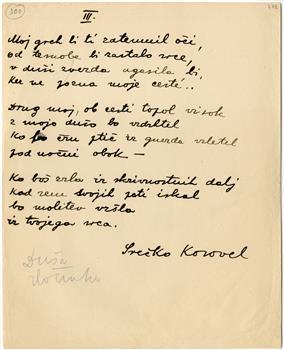 300
III.
Moj greh bi ti zatemnil oči,
od temòbe bi zastalo srce,
v duši zvezda ugasila bi,
ker ne pozna moje cesté..
Drug moj, ob cesti topol visok
z mojo dušo bo vzdrhtel
ko črn ptič iz gnezda vzletel
pod nočni obok —
Ko boš zrla iz skrivnostnih dalj
kod sem svojih poti iskal
bo molitev vzšla
iz tvojega srca.
Srečko Kosovel
Duša